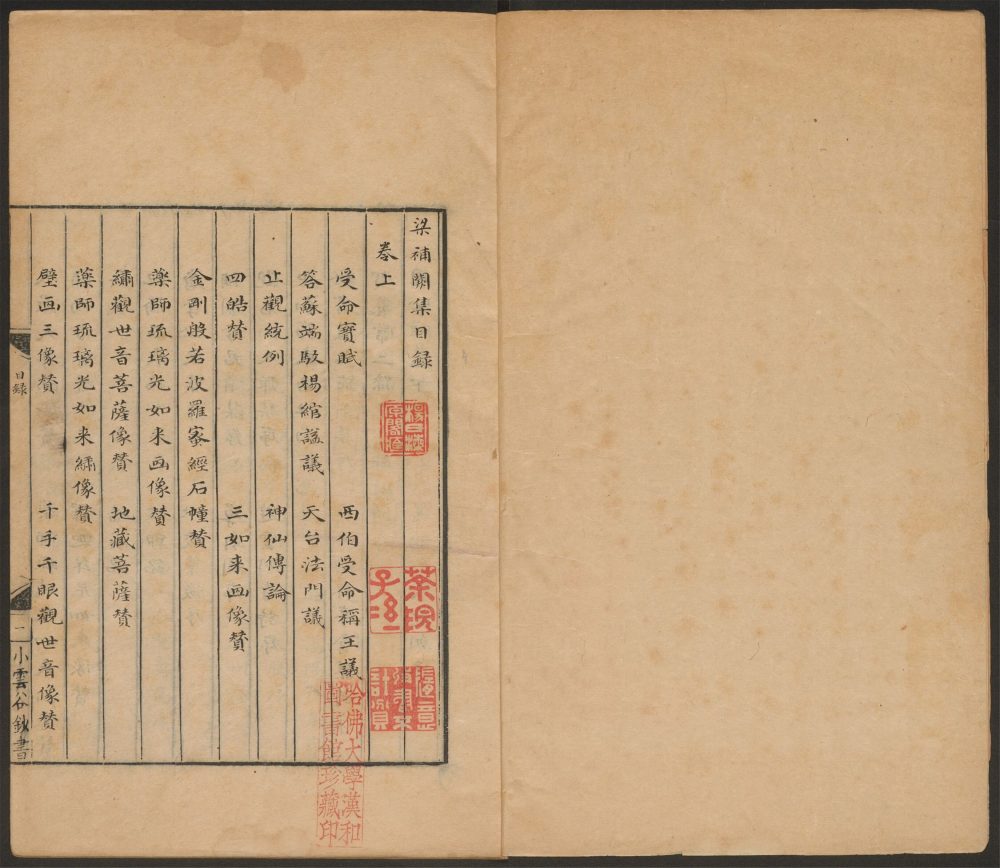 梁補闕集目録
卷上
受命寳賦　西伯受命稱王議
答蘇端駁楊綰謚議　天台法門議
止觀統例　神仙傳論
四皓賛　三如来画像賛
金剛般若波羅蜜經石幢賛
藥師琉璃光如来画像賛
繡觀世音菩薩像賛　地藏菩薩賛
藥師琉璃光如来繡像賛
壁画三像賛　千手千眼觀世音像賛
目録
一
小雲谷鈔書
哈佛大學漢和
圖書館珍藏印